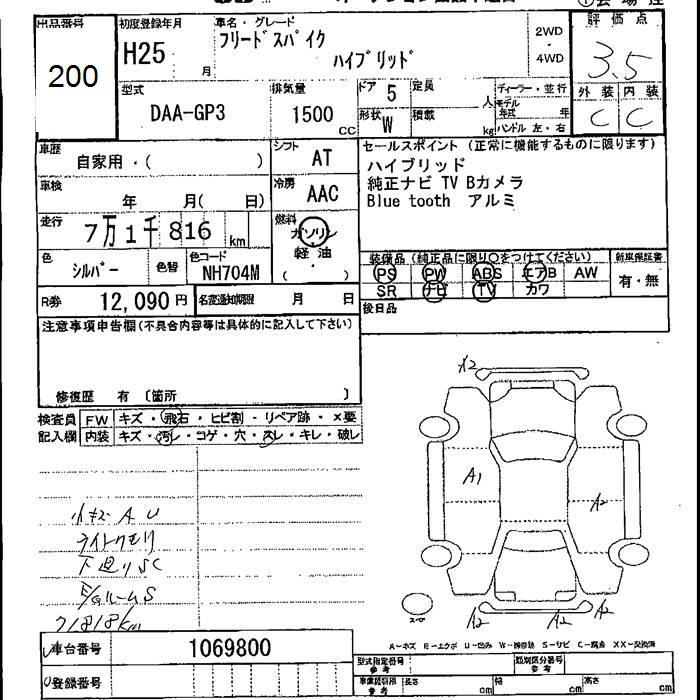 出品番号
200
初度登録年月
H25
月
車名・グレード
フリードスパイク
ハイブリッド
2WD
・
4WD
評価点
3.5
外装 内装
C C
型式
DAA-GP3
排気量
1500
CC
ドア 5
形状 W
定員
人
積載
kg
ディーラー・並行
モデル年式 年
ハンドル 左・右
車歴
自家用・( )
シフト
AT
車検
年 月( 日)
冷房
AAC
走行
7万1千816km
燃料
ガソリン
軽油
( ・ )
色
シルバー
色替
色コード
NH704M
R券
12,090円
名変通知期限 月 日
セールスポイント (正常に機能するものに限ります)
ハイブリッド
純正ナビ TV Bカメラ
Blue tooth アルミ
装備品(純正品に限り○をつけてください)
PS PW ABS エアB AW
SR ナビ TV カワ
新車保証書
有・無
後日品
注意事項申告欄(不具合内容等は具体的に記入して下さい)
修復歴 有 〔箇所 〕
検査員
記入欄
FW キズ・飛石・ヒビ割・リペア跡・×要
内装 キズ・汚レ・コゲ・穴・スレ・キレ・破レ
小キズ A U
ライトクモリ
下廻りSC
E/gルームS
71818km
A2
A1
A2
スペア
A2 A2 A2
A−キズ E−エクボ U−凹み W−補修跡 S−サビ C−腐蝕 XX−交換済
車台番号
1069800
登録番号
型式指定番号
参考
類別区分番号
参考
車庫証明用
参考
長さ cm
幅 cm
高さ cm